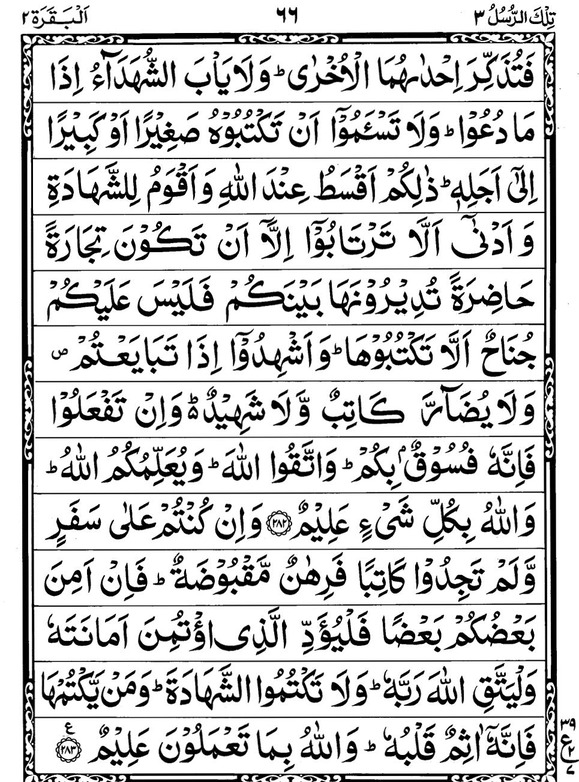 تِلْكَ الرُّسُلُ ٣ ٦٦ اَلْبَقَرَة ٢
فَتُذَكِّرَ اِحْدٰىهُمَا الْاُخْرٰى ؕ وَلَا يَاْبَ الشُّهَدَآءُ اِذَا
مَا دُعُوْا ؕ وَلَا تَسْـَٔمُوْۤا اَنْ تَكْتُبُوْهُ صَغِيْرًا اَوْ كَبِيْرًا
اِلٰٓى اَجَلِهٖ ؕ ذٰلِكُمْ اَقْسَطُ عِنْدَ اللّٰهِ وَاَقْوَمُ لِلشَّهَادَةِ
وَاَدْنٰۤى اَلَّا تَرْتَابُوْۤا اِلَّاۤ اَنْ تَكُوْنَ تِجَارَةً
حَاضِرَةً تُدِيْرُوْنَهَا بَيْنَكُمْ فَلَيْسَ عَلَيْكُمْ
جُنَاحٌ اَلَّا تَكْتُبُوْهَا ؕ وَاَشْهِدُوْۤا اِذَا تَبَايَعْتُمْ ۪
وَلَا يُضَآرَّ كَاتِبٌ وَّلَا شَهِيْدٌ ؕ۬ وَاِنْ تَفْعَلُوْا
فَاِنَّهٗ فُسُوْقٌۢ بِكُمْ ؕ وَاتَّقُوا اللّٰهَ ؕ وَيُعَلِّمُكُمُ اللّٰهُ ؕ
وَاللّٰهُ بِكُلِّ شَيْءٍ عَلِيْمٌ ﴿٢٨٢﴾ وَاِنْ كُنْتُمْ عَلٰى سَفَرٍ
وَّلَمْ تَجِدُوْا كَاتِبًا فَرِهٰنٌ مَّقْبُوْضَةٌ ؕ فَاِنْ اَمِنَ
بَعْضُكُمْ بَعْضًا فَلْيُؤَدِّ الَّذِى اؤْتُمِنَ اَمَانَتَهٗ
وَلْيَتَّقِ اللّٰهَ رَبَّهٗ ؕ وَلَا تَكْتُمُوا الشَّهَادَةَ ؕ وَمَنْ يَّكْتُمْهَا
فَاِنَّهٗۤ اٰثِمٌ قَلْبُهٗ ؕ وَاللّٰهُ بِمَا تَعْمَلُوْنَ عَلِيْمٌ ﴿٢٨٣﴾ ع
٣٩
ع
٢
٧